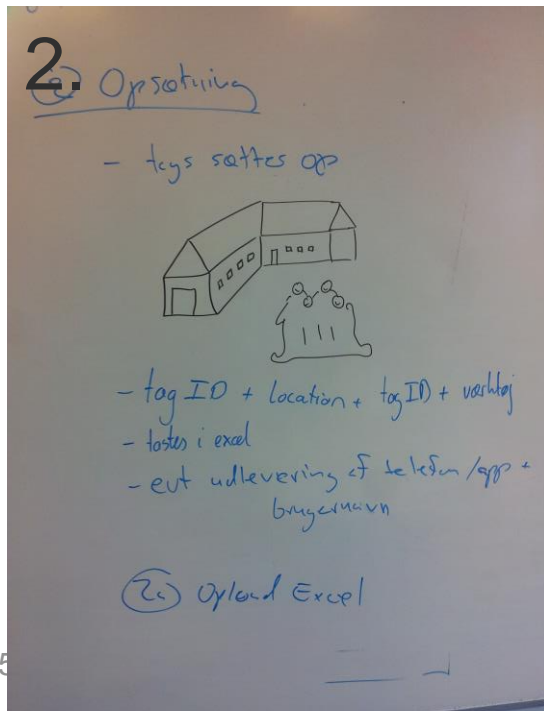 2.
② Opsætning
- tags sættes op
- tag ID + location + tag ID + værktøj
- tastes i excel
- evt udlevering af telefon/app +
brugernavn
Upload Excel
5